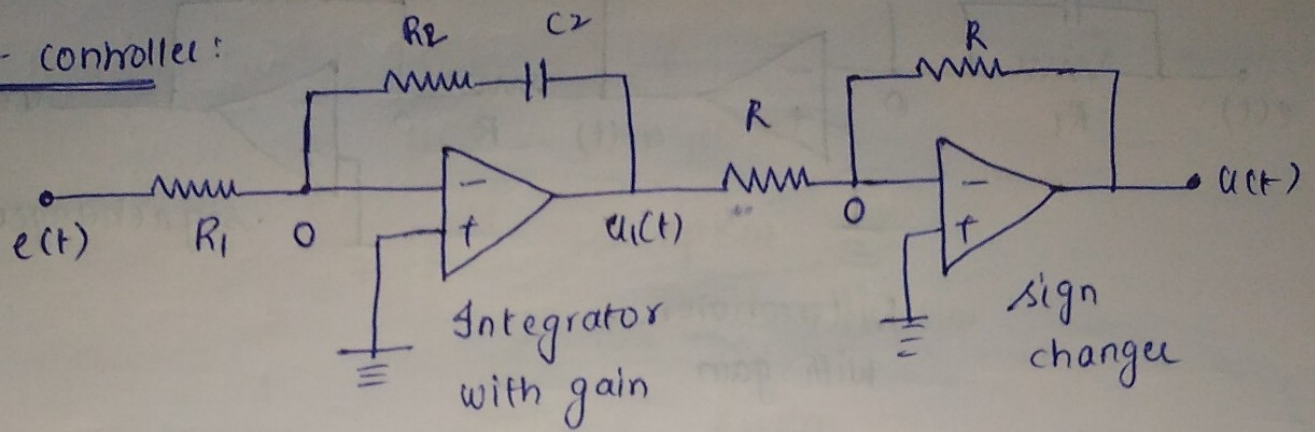 - controller:
R2 C2
R
R
e(t) R1 0
-
+
u1(t)
0
-
+
u(t)
Integrator
with gain
sign
changer